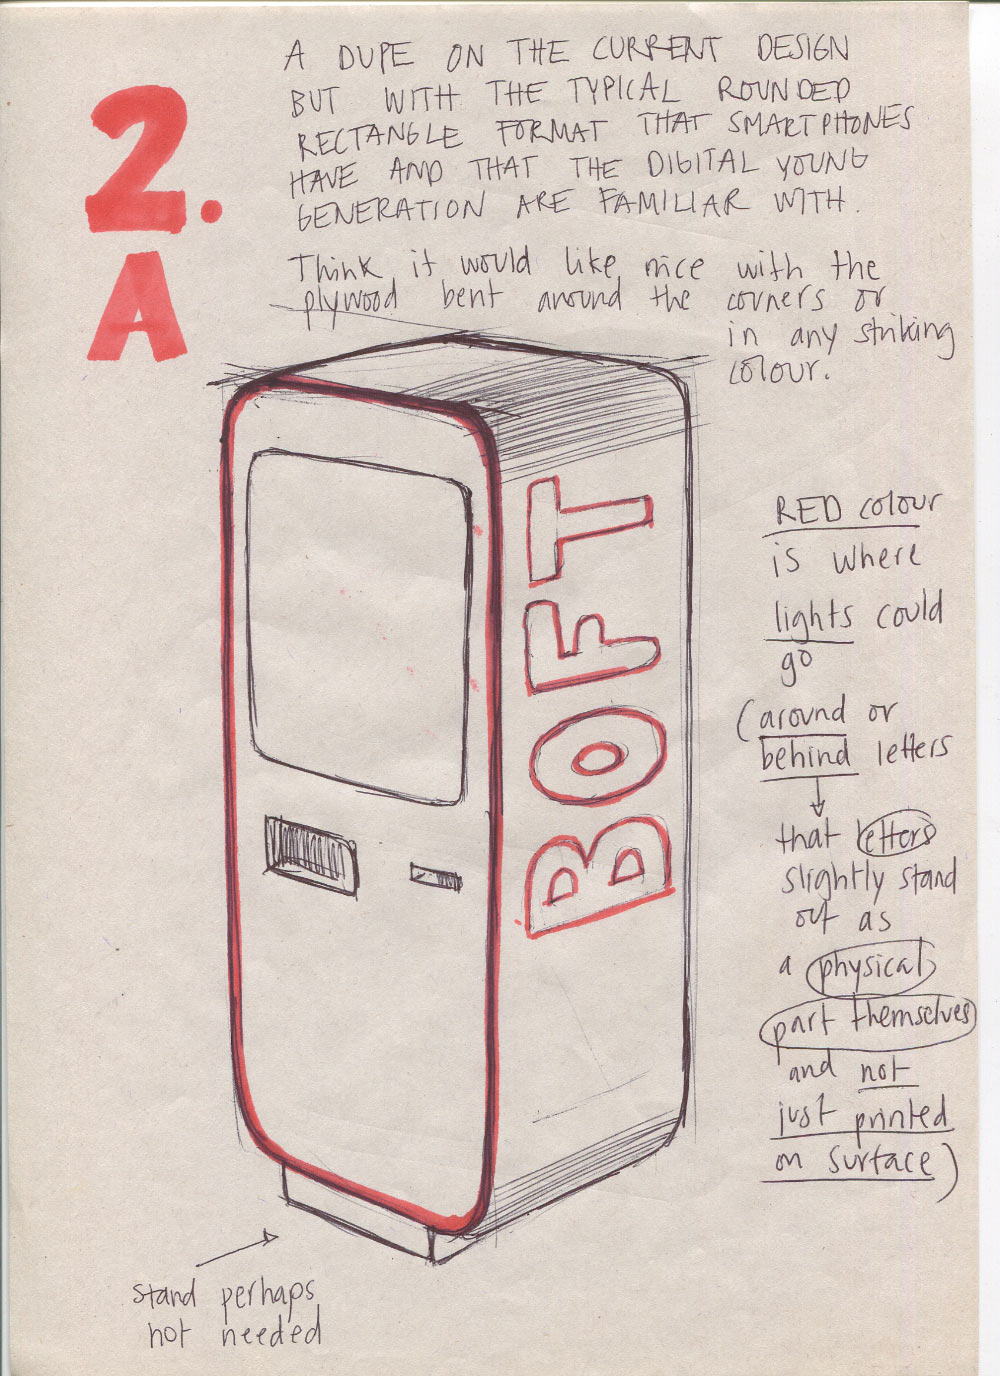 2.
A
A DUPE ON THE CURRENT DESIGN
BUT WITH THE TYPICAL ROUNDED
RECTANGLE FORMAT THAT SMARTPHONES
HAVE AND THAT THE DIGITAL YOUNG
GENERATION ARE FAMILIAR WITH.
Think it would like nice with the
plywood bent around the corners or
in any striking
colour.
BOFT
RED colour
is where
lights could
go
(around or
behind letters
that letters
slightly stand
out as
a physical
part themselves
and not
just printed
on surface)
stand perhaps
not needed